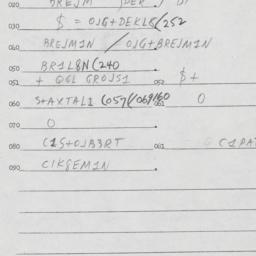 020 BREJM
030 $ = OJG+DEKL8(252
040 BREJM1N / OJG+BREJM1N
050 BR1L8N(240
051 + QGL GROJS1 052 $+
060 S+AXTAL1 (057/(069/60 061 0
070 0
080 C1S+OJB3RT 081 C1PAT
090 C1K8EM1N